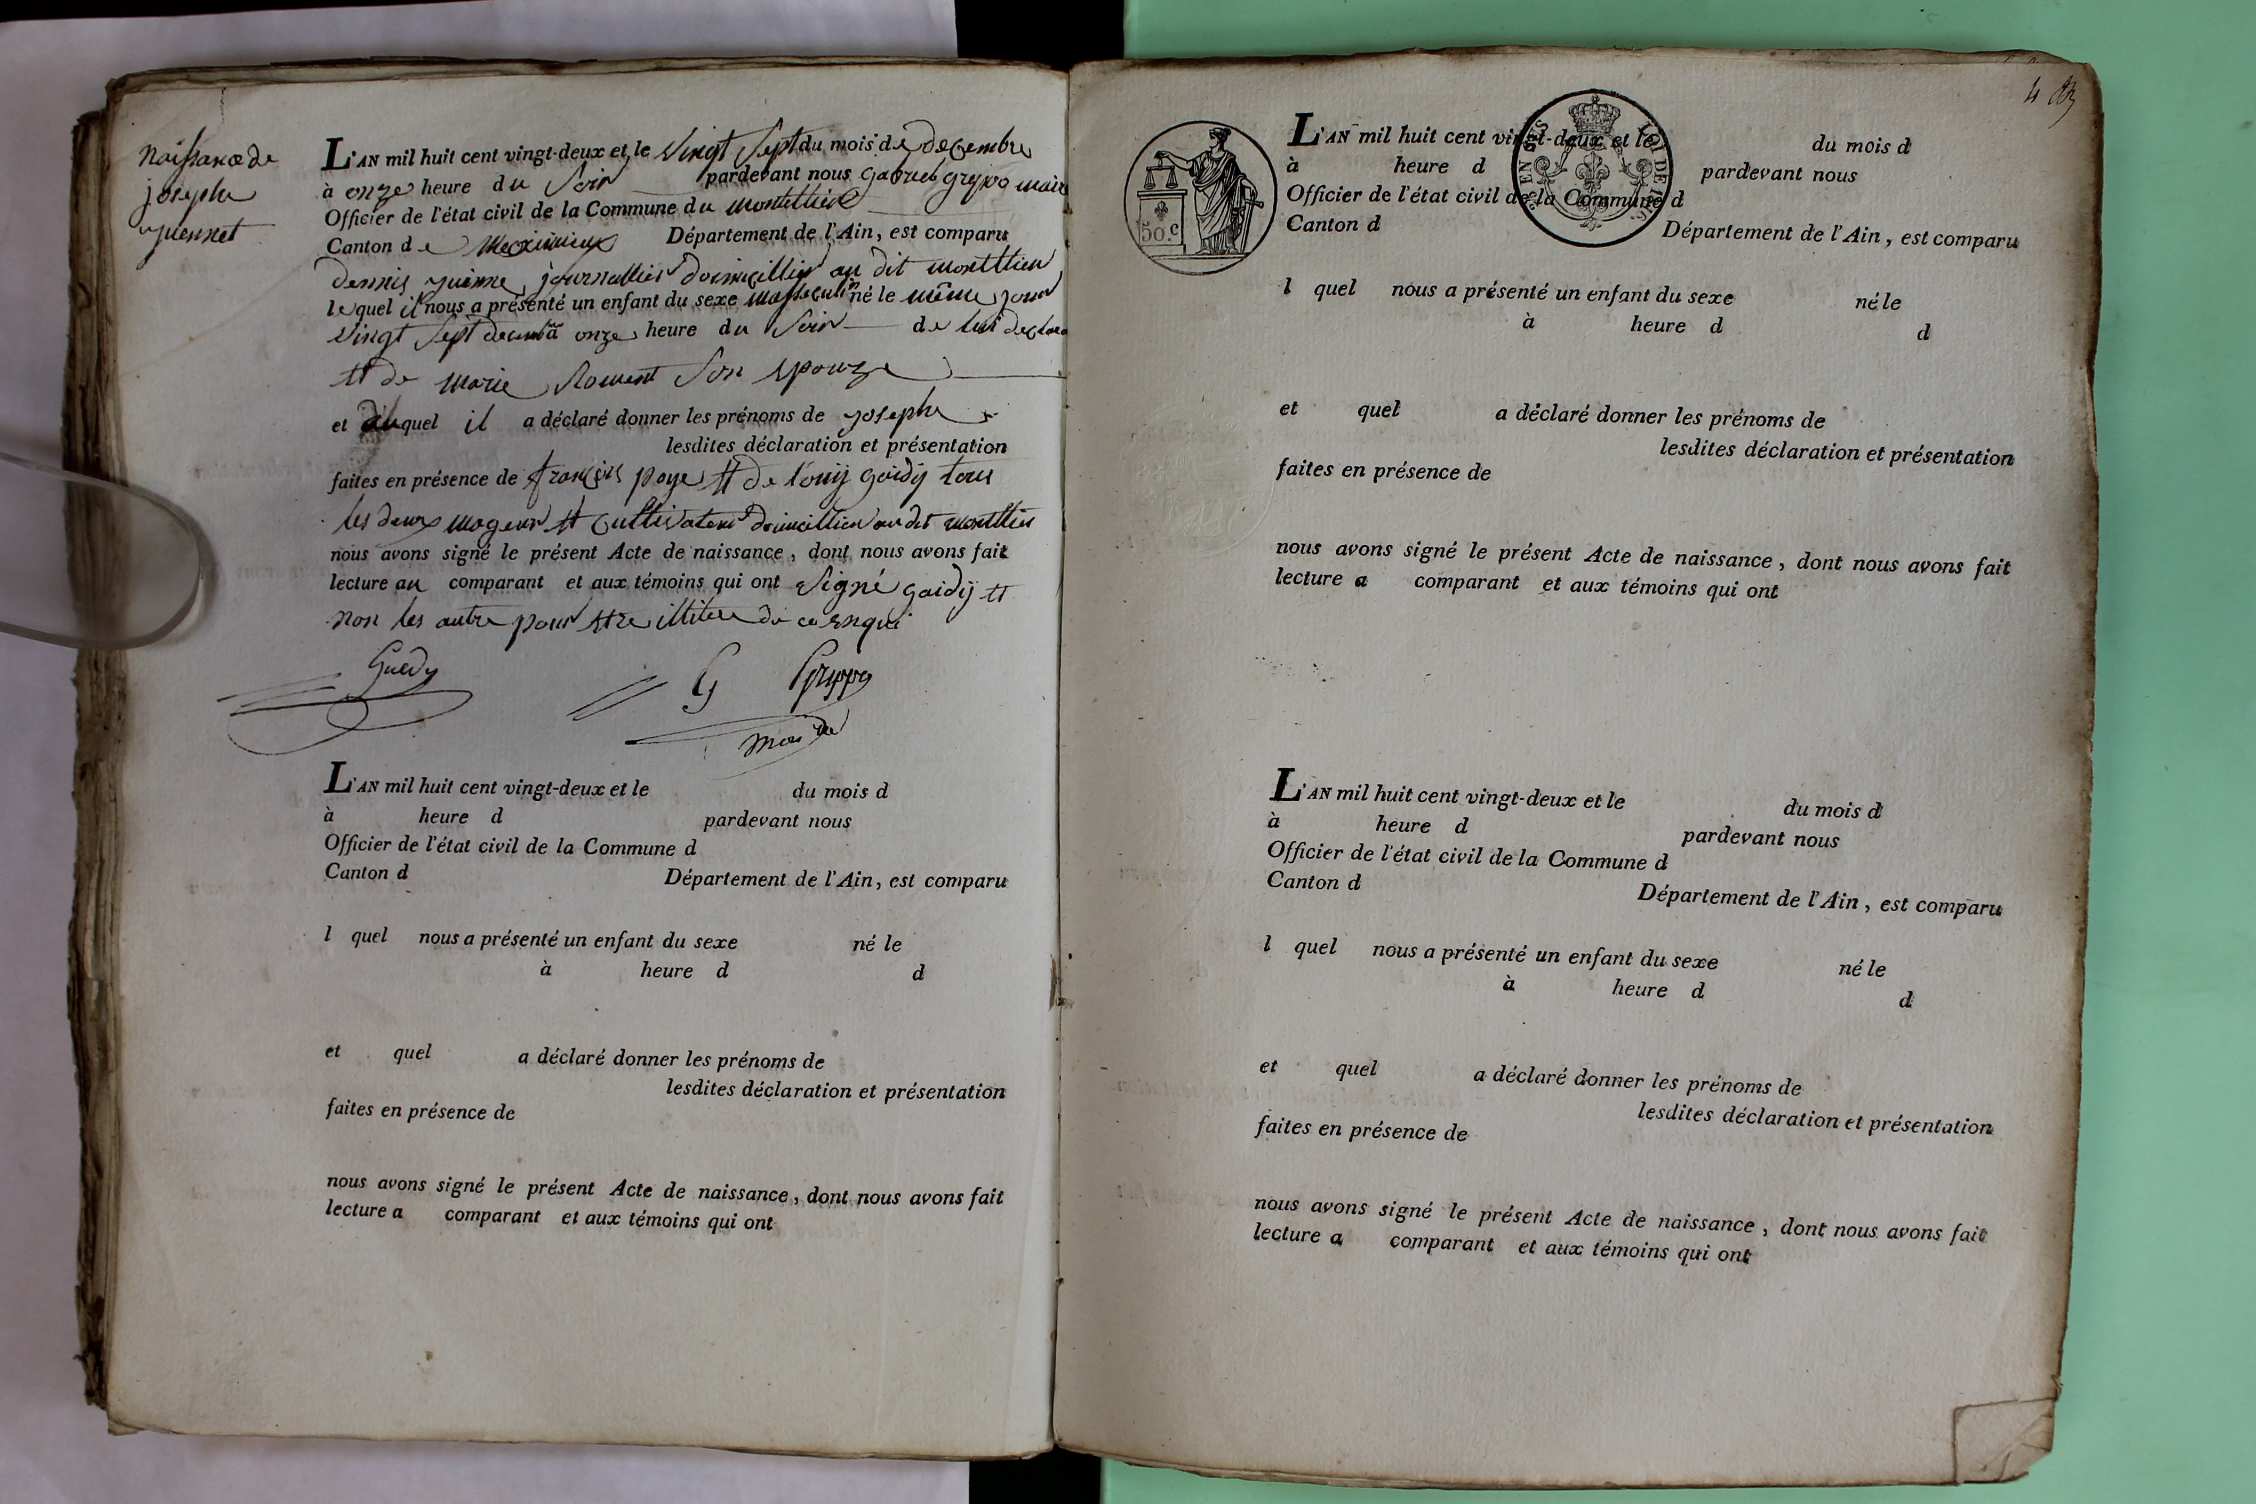 naissance de
joseph
L'AN mil huit cent vingt-deux et le vingt sept du mois de decembre
à onze heure du soir pardevant nous gabriel greppo maire
Officier de l'état civil de la Commune du montellier
Canton de Meximieux Département de l'Ain, est comparu
dennis journallier domicillier au dit montellier
lequel il nous a présenté un enfant du sexe né le même jour
vingt sept à onze heure du soir de lui
et de marie son epouze
et quel il a déclaré donner les prénoms de joseph
lesdites déclaration et présentation
faites en présence de françois paye et de goidy tous
les deux et cultivateur au dit montellier
nous avons signé le présent Acte de naissance, dont nous avons fait
lecture au comparant et aux témoins qui ont signé goidy et
non les autre pour etre de ce enqui
Guedy G Greppo
maire
L'AN mil huit cent vingt-deux et le du mois d
à heure d pardevant nous
Officier de l'état civil de la Commune d
Canton d Département de l'Ain, est comparu
l quel nous a présenté un enfant du sexe né le
à heure d d
et quel a déclaré donner les prénoms de
lesdites déclaration et présentation
faites en présence de
nous avons signé le présent Acte de naissance, dont nous avons fait
lecture a comparant et aux témoins qui ont
4
50.c
L'AN mil huit cent vingt-deux et le du mois d
à heure d pardevant nous
Officier de l'état civil de la Commune d
Canton d Département de l'Ain, est comparu
l quel nous a présenté un enfant du sexe né le
à heure d d
et quel a déclaré donner les prénoms de
lesdites déclaration et présentation
faites en présence de
nous avons signé le présent Acte de naissance, dont nous avons fait
lecture a comparant et aux témoins qui ont
L'AN mil huit cent vingt-deux et le du mois d
à heure d pardevant nous
Officier de l'état civil de la Commune d
Canton d Département de l'Ain, est comparu
l quel nous a présenté un enfant du sexe né le
à heure d d
et quel a déclaré donner les prénoms de
lesdites déclaration et présentation
faites en présence de
nous avons signé le présent Acte de naissance, dont nous avons fait
lecture a comparant et aux témoins qui ont